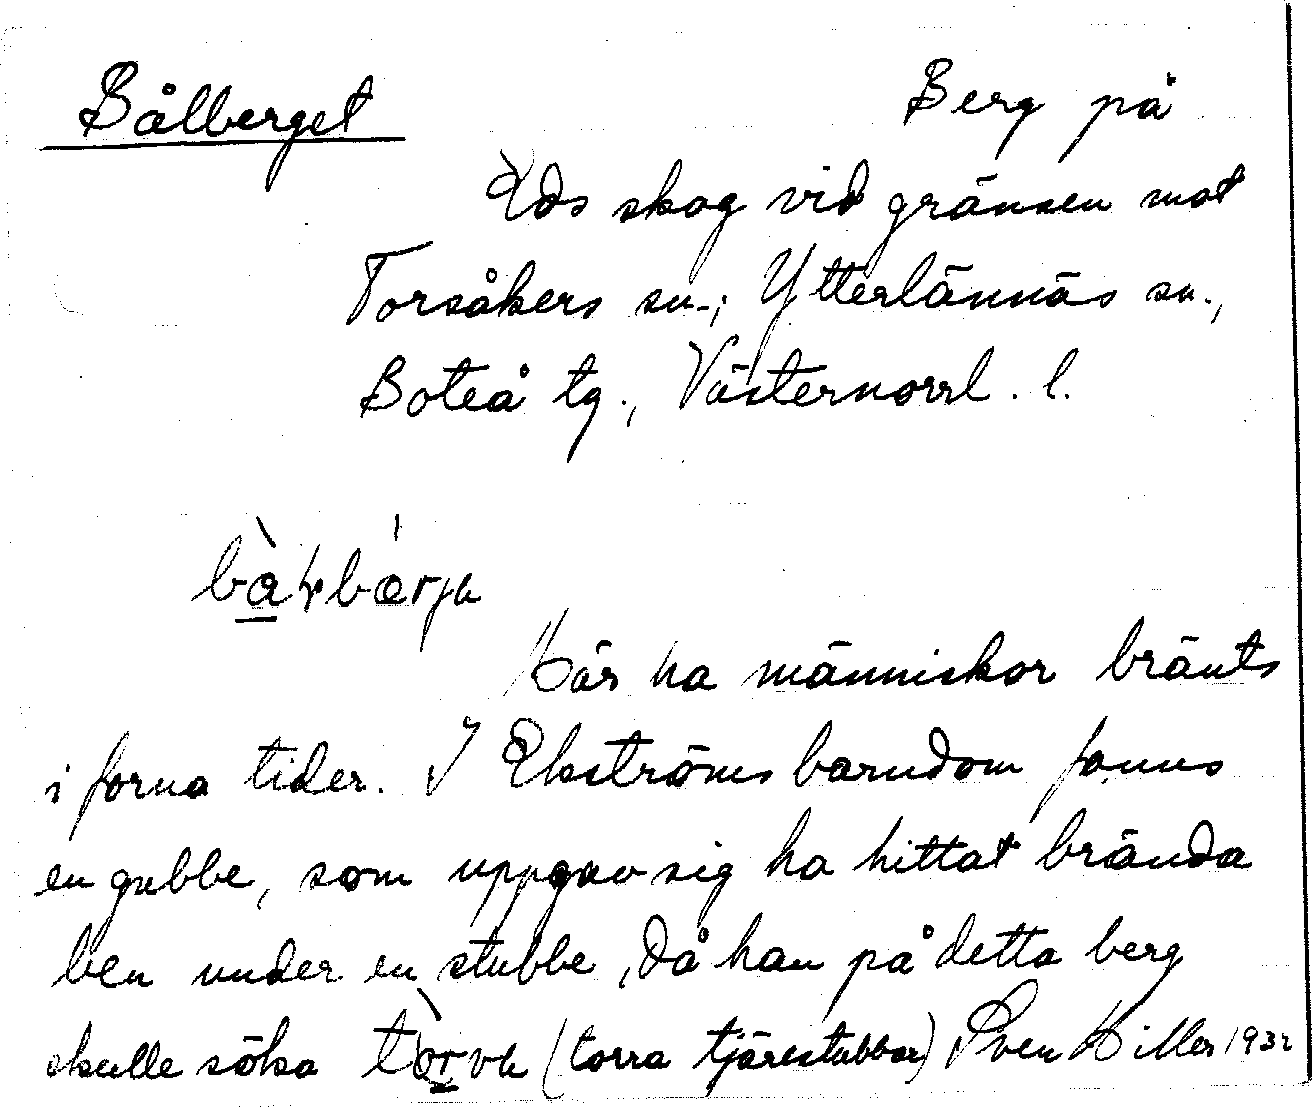 Bålberget
Berg på
Eds skog vid gränsen mot
Torsåkers sn.; Ytterlännäs sn.,
Boteå tg., Västernorrl. l.
Här ha människor bränts
i forna tider. I Ekströms barndom fanns
en gubbe, som uppgav sig ha hittat brända
ben under en stubbe, då han på detta berg
skulle söka (torra tjärestubbar) Sven Hiller 1932